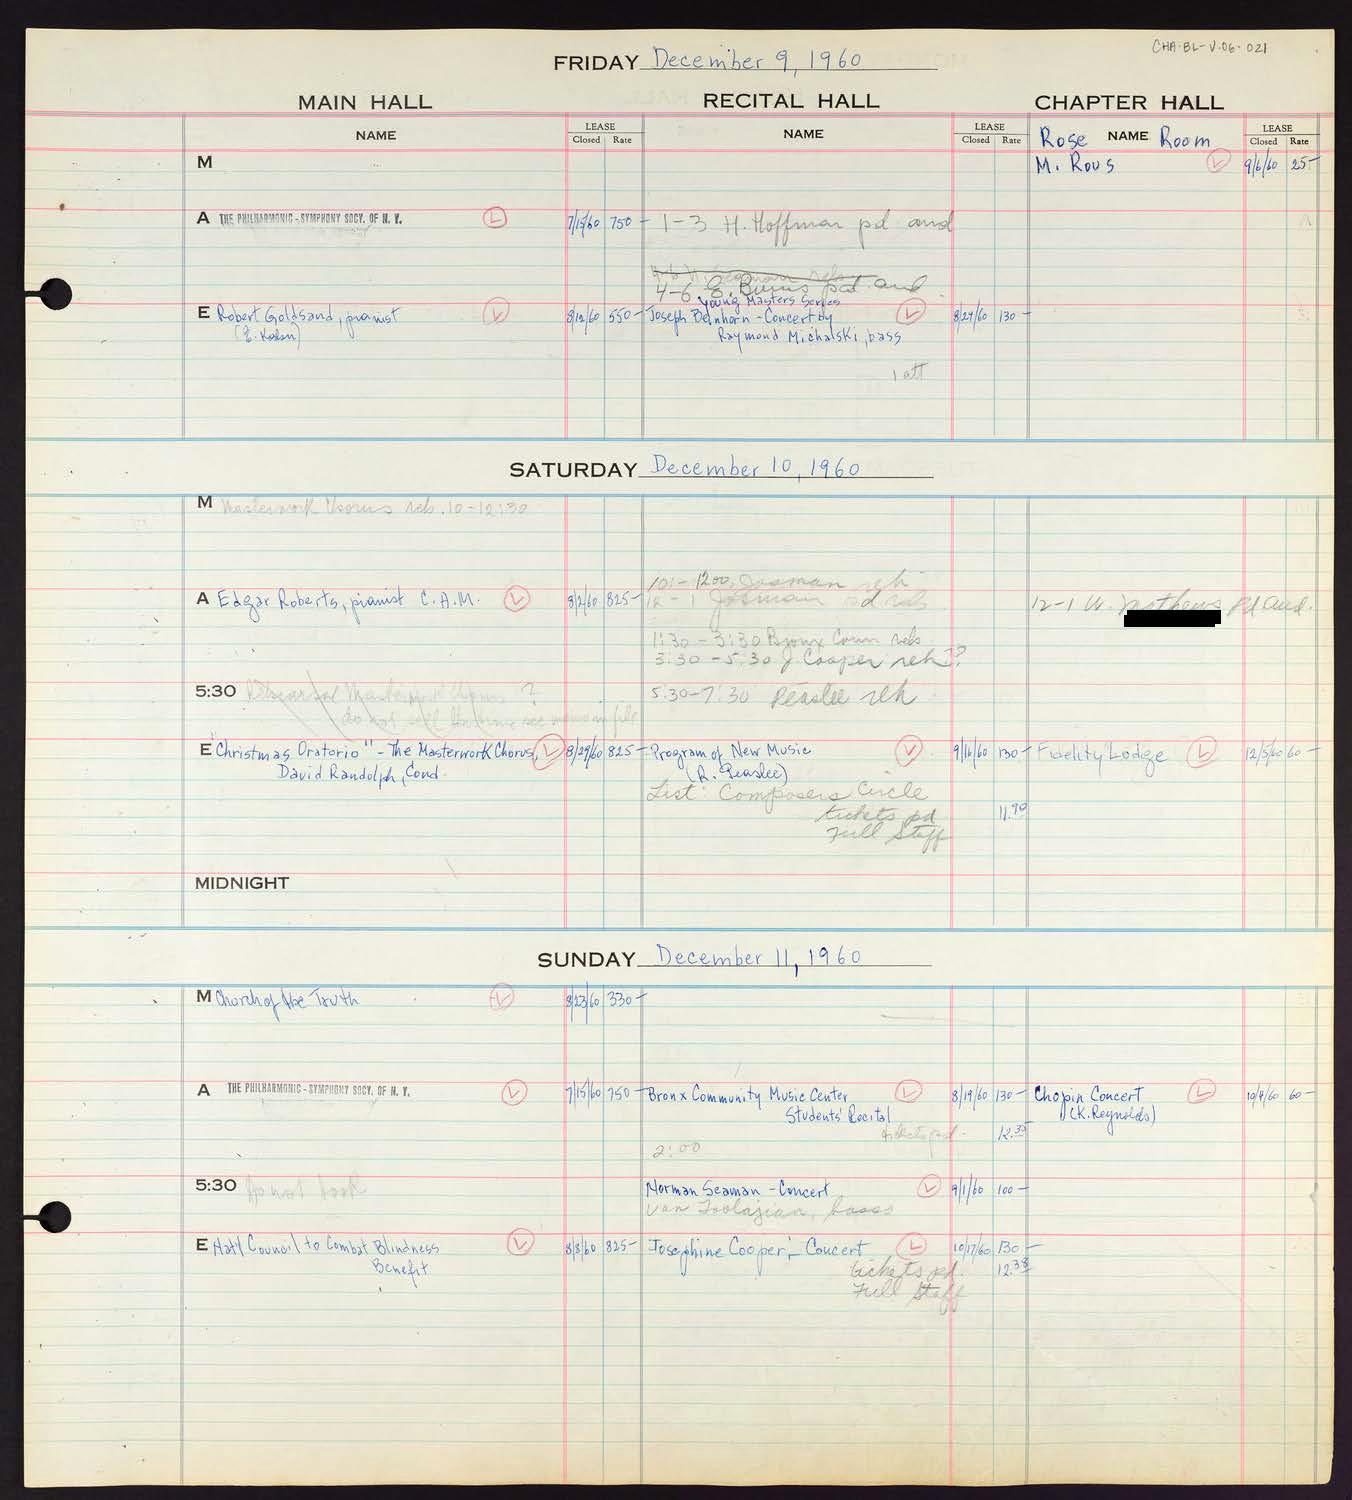 CHA-BL-V.06-021
FRIDAY December 9, 1960
MAIN HALL RECITAL HALL CHAPTER HALL
NAME LEASE Closed Rate NAME LEASE Closed Rate Rose NAME Room LEASE Closed Rate
M M. Rous L 9/6/60 25-
A THE PHILHARMONIC-SYMPHONY SOCY. OF N. Y. L 7/15/60 750- 1-3 H. Hoffman pd aud
4-6 E. Burns pd. aud
Young Masters Series
E Robert Goldsand, pianist L 8/12/60 550- Joseph Beinhorn - Concert by L 8/24/60 130-
Raymond Michalski, bass
1 att
SATURDAY December 10, 1960
M Masterwork Chorus reh. 10-12:30
10:-1200, Josman reh
A Edgar Roberts, pianist C.A.M. L 8/2/60 825- 12-1 Josman pd reh 12-1 W. pd aud.
1:30-3:30 Bronx Comm reh
3:30-5:30 J. Cooper reh?
5:30 Masterwork Chorus ? 5:30-7:30 Peaslee reh
do not sell this time see memo in file
E "Christmas Oratorio" - The Masterwork Chorus, L 8/29/60 825- Program of New Music L 9/16/60 130- Fidelity Lodge L 12/5/60 60-
David Randolph, Cond. (R. Peaslee)
List: Composers Circle
tickets pd 11.90
Full Staff
MIDNIGHT
SUNDAY December 11, 1960
M Church of the Truth L 8/23/60 330-
A THE PHILHARMONIC-SYMPHONY SOCY. OF N. Y. L 7/15/60 750- Bronx Community Music Center L 8/19/60 130- Chopin Concert L 10/4/60 60-
Students' Recital (K. Reynolds)
tickets pd. 12.35
2:00
5:30 Do not book Norman Seaman - Concert L 9/1/60 100-
bass
E Nat'l Council to Combat Blindness L 8/8/60 825- Josephine Cooper - Concert L 10/17/60 130-
Benefit tickets pd. 12.38
Full Staff